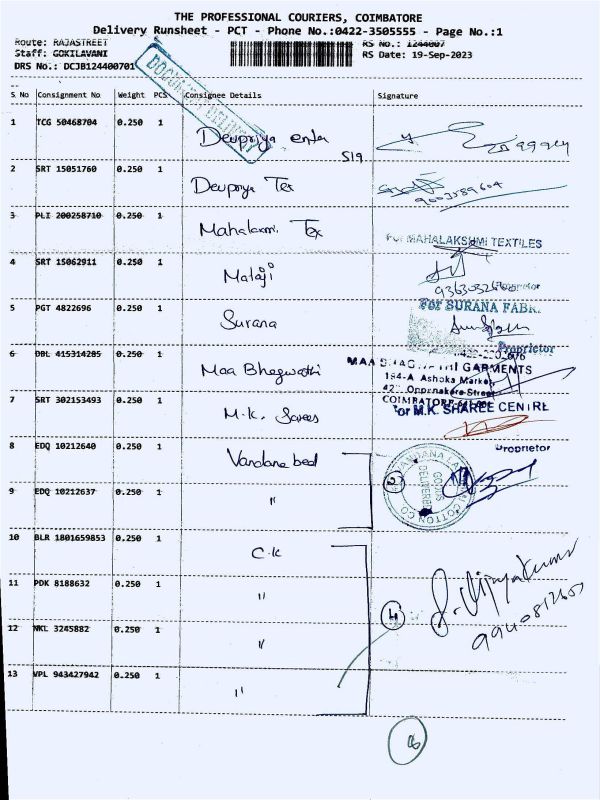 THE PROFESSIONAL COURIERS, COIMBATORE
Delivery Runsheet - PCT - Phone No.:0422-3505555 - Page No.:1
Route: RAJASTREET
RS No.: 1244007
Staff: GOKILAVANI
RS Date: 19-Sep-2023
DRS No.: DCJB124400701
S No Consignment No Weight PCS Consignee Details Signature
1 TCG 50468704 0.250 1 Devpriya enter
S19
2 SRT 15051760 0.250 1 Devpriya Tex
9003589604
3 PLI 200258710 0.250 1 Mahalaxmi Tex
For MAHALAKSHMI TEXTILES
4 SRT 15062911 0.250 1 Mataji
Proprietor
5 PGT 4822696 0.250 1 Surana
For SURANA FABR
Proprietor
6 DBL 415314285 0.250 1 Maa Bhagwathi
GARMENTS
194-A Ashoka Market,
Oppanakara Street
COIMBATORE
7 SRT 302153493 0.250 1 M.K. Sarees
For M.K. SHAREE CENTRE
Proprietor
8 EDQ 10212640 0.250 1 Vandana bed
2
GOODS DELIVERED
9 EDQ 10212637 0.250 1 "
10 BLR 1801659853 0.250 1 C.K
11 PDK 8188632 0.250 1 "
4
12 NKL 3245882 0.250 1 "
13 VPL 943427942 0.250 1 "